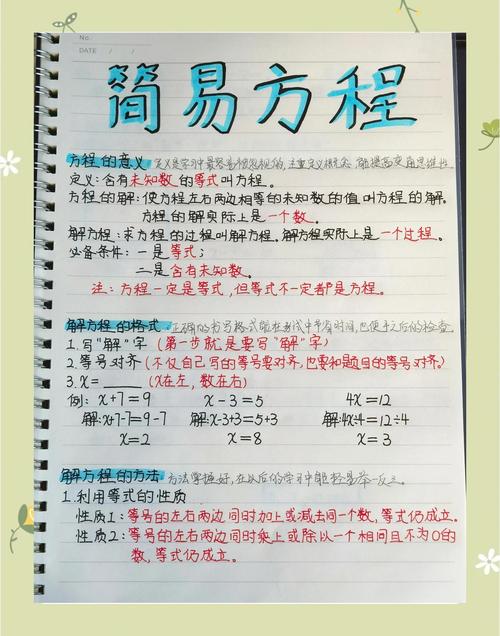 No.
DATE / /
简易方程
方程的意义
定义:含有未知数的等式叫方程。
方程的解:使方程左右两边相等的未知数的值叫方程的解。
方程的解实际上是一个数。
解方程:求方程的过程叫解方程。解方程实际上是一个过程。
必备条件:一是等式;
二是含有未知数。
注:方程一定是等式,但等式不一定都是方程。
解方程的格式 正确的书写格式能在考试中节省时间,也便于之后的检查。
1.写"解"字(第一步就是要写"解"字)
2.等号对齐(不仅自己写的等号要对齐,也要和题目的等号对齐。)
3.x=____(x在左,数在右)
例: x+7=9 x-3=5 4x=12
解:x+7-7=9-7 解:x-3+3=5+3 解:4x÷4=12÷4
x=2 x=8 x=3
解方程的方法 方法掌握好,在以后的学习中能轻易举一反三。
1.利用等式的性质
性质1:等号的左右两边同时加上或减去同一个数,等式仍成立。
性质2:等号的左右两边同时乘上或除以一个相同且不为0的
数,等式仍成立。